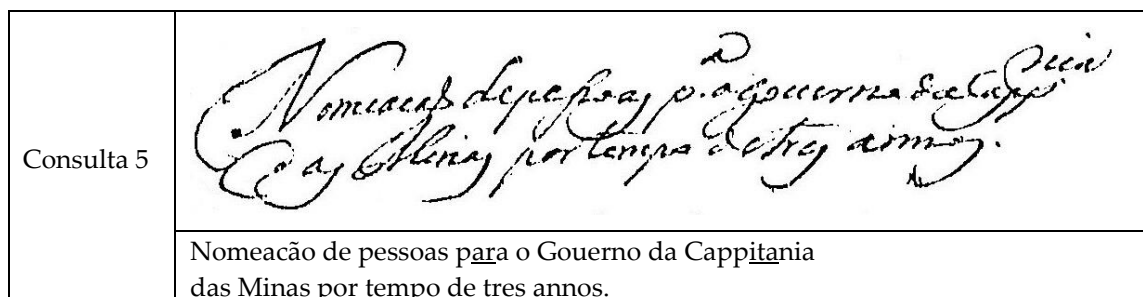 Consulta 5
Nomeacão de pessoas p.ª o gouerno da Capp.nia
das Minas por tempo de tres annos.
Nomeacão de pessoas para o Gouerno da Cappitania
das Minas por tempo de tres annos.